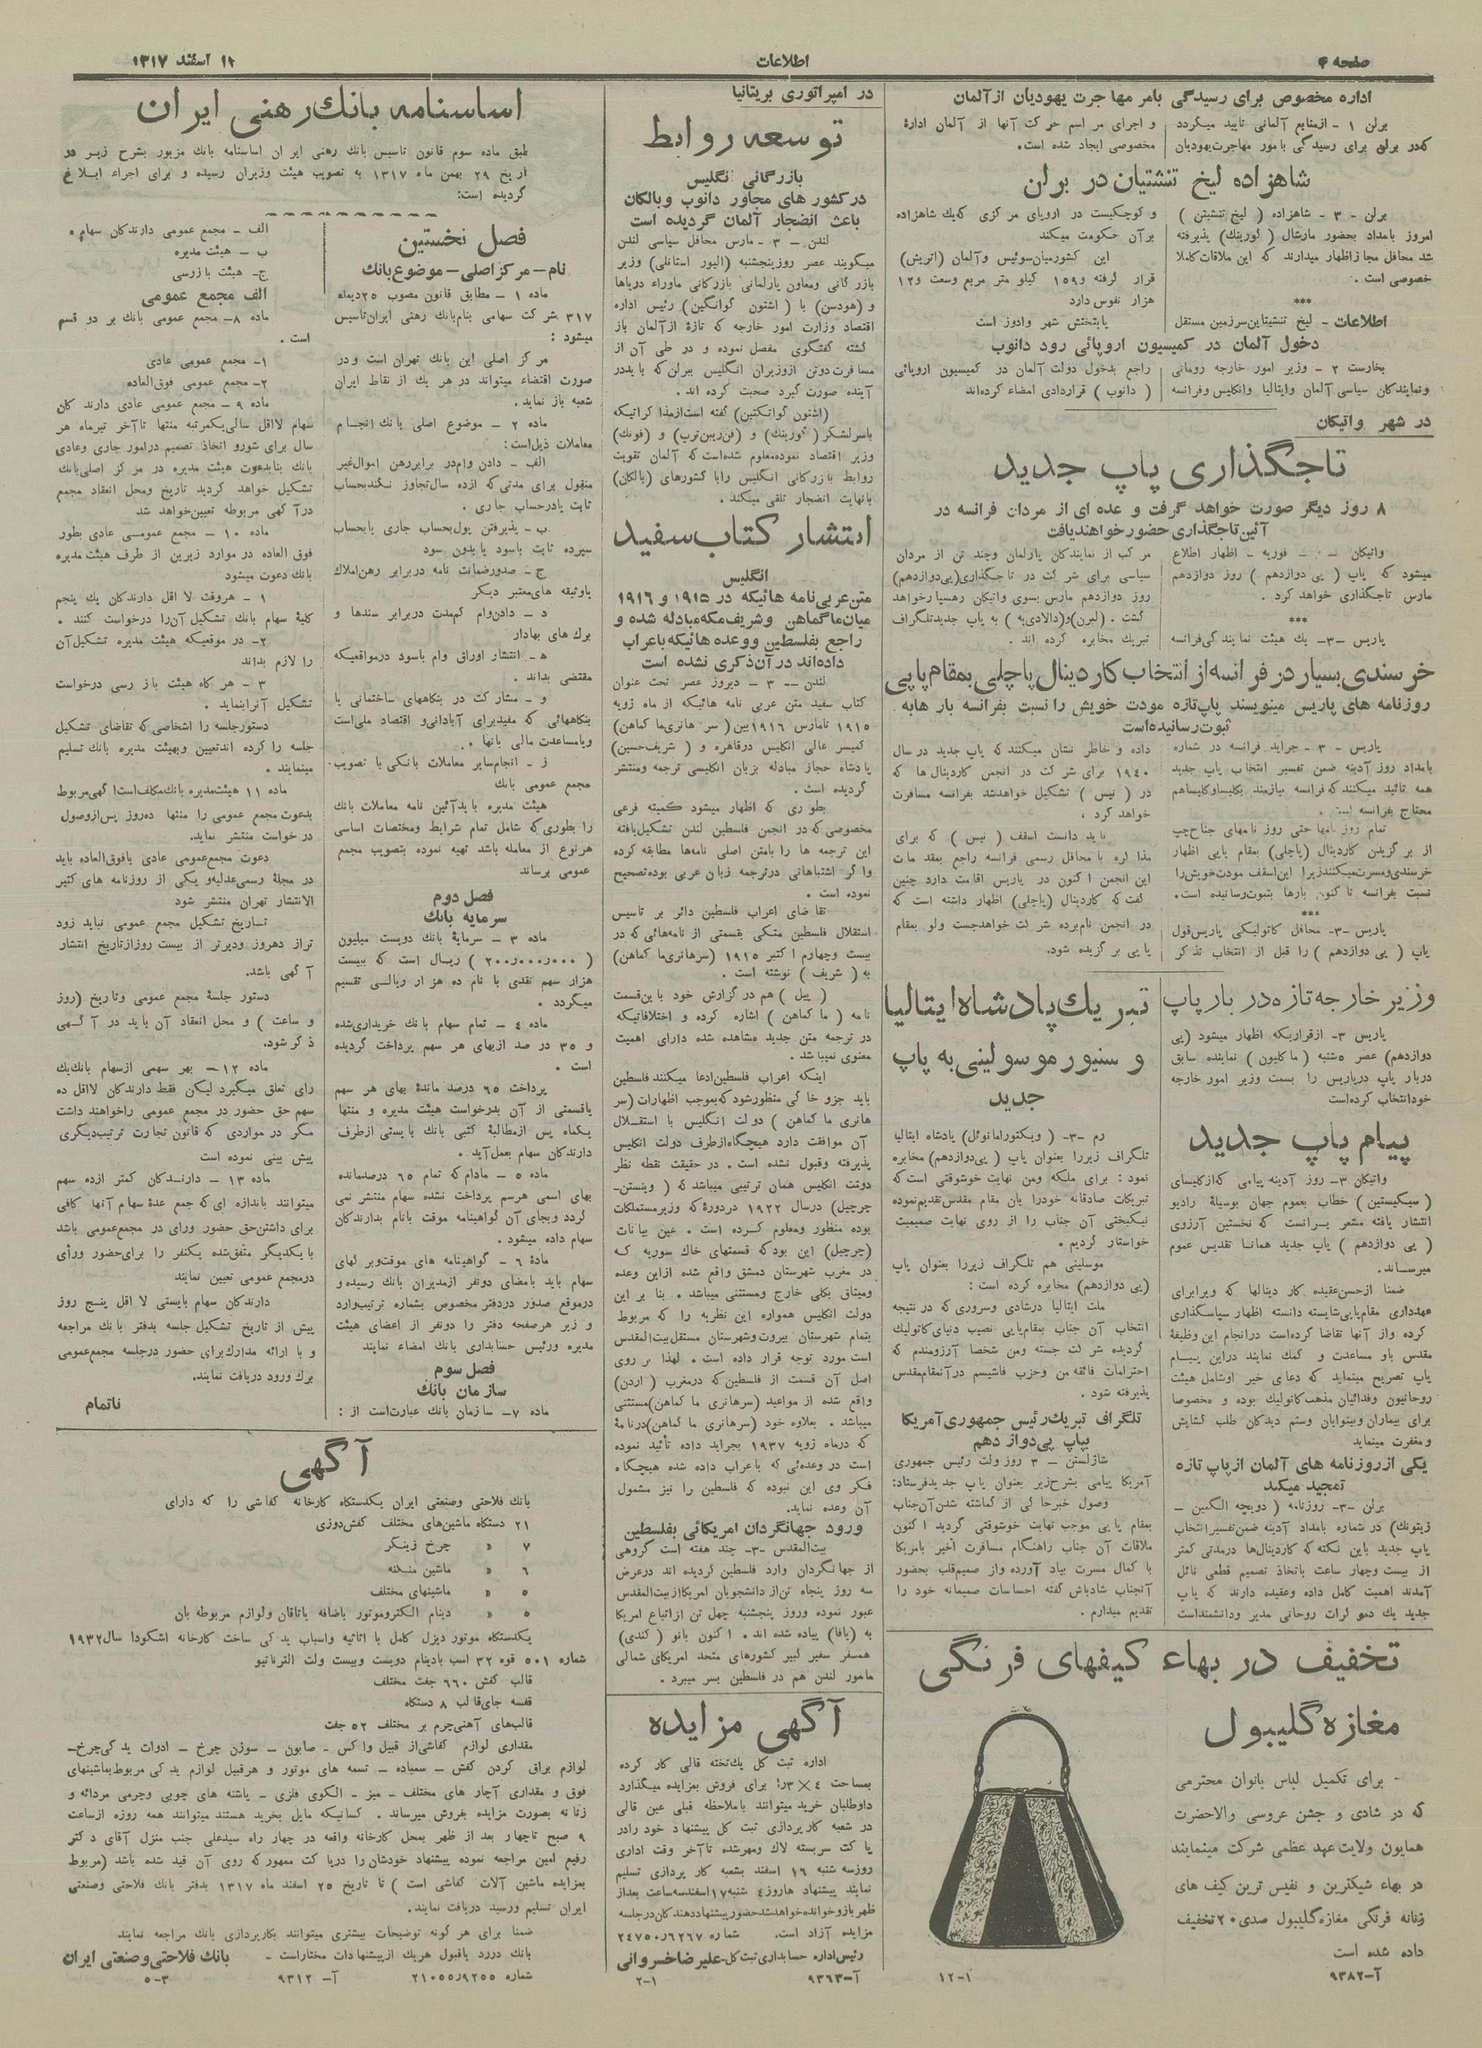 صفحه ۴
اطلاعات
۱۲ اسفند ۱۳۱۷
اداره مخصوص برای رسیدگی بامر مهاجرت یهودیان از آلمان
برلن ۱ - از منابع آلمانی تایید میگردد
که در برلن برای رسیدگی بامور مهاجرت یهودیان
و اجرای مراسم حرکت آنها از آلمان ادارهٔ
مخصوصی ایجاد شده است.
شاهزاده لیخ تنشتیان در برلن
برلن - ۳ - شاهزاده ( لیخ تنشیتن )
امروز بامداد بحضور مارشال ( گورینک ) پذیرفته
شد محافل مجاز اظهار میدارند که این ملاقات کاملا
خصوصی است .
***
اطلاعات - لیخ تنشیتاین سرزمین مستقل
و کوچکیست در اروپای مرکزی که یك شاهزاده
بر آن حکومت میکند
این کشور میان سوئیس و آلمان (اتریش)
قرار گرفته و ۱۵۹ کیلو متر مربع وسعت و ۱۲
هزار نفوس دارد
پایتختش شهر وادوز است
دخول آلمان در کمیسیون اروپائی رود دانوب
بخارست ۲ - وزیر امور خارجه رومانی
و نمایندگان سیاسی آلمان و ایتالیا و انگلیس و فرانسه
راجع بدخول دولت آلمان در کمیسیون اروپائی
( دانوب ) قراردادی امضاء کرده‌اند
در شهر واتیکان
تاجگذاری پاپ جدید
۸ روز دیگر صورت خواهد گرفت و عده ای از مردان فرانسه در
آئین تاجگذاری حضور خواهند یافت
فوریه - اظهار اطلاع
میشود که پاپ ( پی دوازدهم ) روز دوازدهم
مارس تاجگذاری خواهد کرد .
***
پاریس -۳- یك هیئت نمایندگی فرانسه
مرکب از نمایندگان پارلمان و چند تن از مردان
سیاسی برای شرکت در تاجگذاری (پی دوازدهم)
روز دوازدهم مارس بسوی واتیکان رهسپار خواهد
گشت . (لبرن) و (دالادی‌یه ) به پاپ جدید تلگراف
تبریك مخابره کرده اند .
خرسندی بسیار در فرانسه از انتخاب کاردینال پاچلی بمقام پاپی
روزنامه های پاریس مینویسند پاپ تازه مودت خویش را نسبت بفرانسه بارهابه
ثبوت رسانیده است
پاریس - ۳ - جراید فرانسه در شماره
بامداد روز آدینه ضمن تفسیر انتخاب پاپ جدید
همه تائید میکنند که فرانسه نیازمند بکلیسا و کلیسا هم
محتاج بفرانسه است .
تمام روز نامها حتی روز نامهای جناح چپ
از برگزیدن کاردینال (پاچلی) بمقام پاپی اظهار
خرسندی و مسرت میکنند زیرا این اسقف مودت خویش را
نسبت بفرانسه تا کنون بارها بثبوت رسانیده است.
***
پاریس -۳- محافل کاتولیکی پاریس قول
پاپ ( پی دوازدهم ) را قبل از انتخاب تذکر
داده و خاطر نشان میکنند که پاپ جدید در سال
۱۹۴۰ برای شرکت در انجمن کاردینال‌ها که
در ( نیس ) تشکیل خواهد شد بفرانسه مسافرت
خواهد کرد .
باید دانست اسقف ( نیس ) که برای
مذا کره با محافل رسمی فرانسه راجع بمقدمات
این انجمن اکنون در پاریس اقامت دارد چنین
گفت که کاردینال (پاچلی) اظهار داشته است که
در انجمن نام برده شرکت خواهد جست ولو بمقام
پاپی برگزیده شود.
وزیر خارجه تازه در بار پاپ
پاریس ۳- از قراریکه اظهار میشود (پی
دوازدهم) عصر ۵شنبه ( ماگلیون ) نماینده سابق
دربار پاپ درپاریس را بسمت وزیر امور خارجه
خود انتخاب کرده است
پیام پاپ جدید
واتیکان ۳- روز آدینه پیامی که از کلیسای
( سیکیستین ) خطاب بعموم جهان بوسیلهٔ رادیو
انتشار یافته مشعر براینست که نخستین آرزوی
( پی دوازدهم ) پاپ جدید همانا تقدیس عموم
میرساند.
ضمنا از حسن عقیده کاردینالها که ویرا برای
عهده‌داری مقام پاپی شایسته دانسته اظهار سپاسگذاری
کرده واز آنها تقاضا کرده است درانجام این وظیفهٔ
مقدس باو مساعدت و کمك نمایند دراین پیام
پاپ تصریح مینماید که دعای خیر او شامل هیئت
روحانیون و فدائیان مذهب کاتولیك بوده و مخصوصا
برای بیماران و بینوایان وستم دیدگان طلب گشایش
و مغفرت مینماید
یکی از روزنامه های آلمان از پاپ تازه
تمجید میکند
برلن -۳- روزنامه ( دویچه الگمین -
زیتونك) در شماره بامداد آدینه ضمن تفسیر انتخاب
پاپ جدید باین نکته که کاردینال‌ها درمدتی کمتر
از بیست وچهار ساعت باتخاذ تصمیم قطعی نائل
آمدند اهمیت کامل داده و عقیده دارند که پاپ
جدید یك دمو کرات روحانی مدبر ودانشمند است
تبریك پادشاه ایتالیا
و سنیور موسولینی به پاپ
جدید
رم -۳- ( ویکتورامانوئل) پادشاه ایتالیا
تلگراف زیر را بعنوان پاپ ( پی دوازدهم) مخابره
نمود : برای ملکه ومن نهایت خوشوقتی است که
تبریکات صادقانه خود را بان مقام مقدس تقدیم نموده
نیکبختی آن جناب را از روی نهایت صمیمیت
خواستار گردیم .
موسلینی هم تلگراف زیر را بعنوان پاپ
(پی دوازدهم) مخابره کرده است :
ملت ایتالیا درشادی وسروری که در نتیجه
انتخاب آن جناب بمقام پاپی نصیب دنیای کاتولیك
گردیده شرکت جسته ومن شخصا آرزومندم که
احترامات فائقه من وحزب فاشیسم در آنمقام مقدس
پذیرفته شود .
تلگراف تبریك رئیس جمهوری آمریکا
بپاپ پی دوازدهم
شازلستن - ۳ روز ولت رئیس جمهوری
آمریکا پیامی بشرح زیر بعنوان پاپ جدید فرستاد:
وصول خبر حاکی از گماشته شدن آن جناب
بمقام پاپی موجب نهایت خوشوقتی گردید اکنون
ملاقات آن جناب را هنگام مسافرت اخیر بامریکا
با کمال مسرت بیاد آورده واز صمیم قلب بحضور
آنجناب شادباش گفته احساسات صمیمانه خود را
تقدیم میدارم .
تخفیف در بهاء کیفهای فرنگی
مغازه گلیبول
برای تکمیل لباس بانوان محترمی
که در شادی و جشن عروسی والاحضرت
همایون ولایت عهد عظمی شرکت مینمایند
در بهاء شیکترین و نفیس ترین کیف های
زنانه فرنگی مغازه گلیبول صدی ۲۰ تخفیف
داده شده است
آ-۹۳۸۲
۱۲-۱
در امپراتوری بریتانیا
توسعه روابط
بازرگانی انگلیس
در کشور های مجاور دانوب و بالکان
باعث انضجار آلمان گردیده است
لندن - ۳ - مارس محافل سیاسی لندن
میگویند عصر روز پنجشنبه (الیور استانلی) وزیر
بازرگانی ومعاون پارلمانی بازرگانی ماوراء دریاها
و (هودسن) با ( اشتون گواتگین) رئیس اداره
اقتصاد وزارت امور خارجه که تازه از آلمان باز
گشته گفتگوی مفصل نموده و در طی آن از
مسافرت دوتن از وزیران انگلیس ببرلن که بایددر
آینده صورت گیرد صحبت کرده اند .
(اشتون گواتکین) گفته است از مذا کراتیکه
باسرلشکر ( گورینك) و (فن ریبن‌ترپ) و (فونك)
وزیر اقتصاد نموده معلوم شده است که آلمان تقویت
روابط بازرگانی انگلیس رابا کشورهای (بالکان)
بانهایت انضجار تلقی میکند .
انتشار کتاب سفید
انگلیس
متن عربی نامه هائیکه در ۱۹۱۵ و ۱۹۱۶
میان ماگماهن و شریف مکه مبادله شده و
راجع بفلسطین ووعده هائیکه باعراب
داده‌اند در آن ذکری نشده است
لندن - ۳ - دیروز عصر تحت عنوان
کتاب سفید متن عربی نامه هائیکه از ماه ژویه
۱۹۱۵ تامارس ۱۹۱۶ بین ( سر هانری‌ما کماهن)
کمیسر عالی انگلیس درقاهره و ( شریف حسین)
پادشاه حجاز مبادله بزبان انگلیسی ترجمه ومنتشر
گردیده است .
بطوری که اظهار میشود کمیته فرعی
مخصوصی که در انجمن فلسطین لندن تشکیل یافته
این ترجمه ها را بامتن اصلی نامه‌ها مطابقه کرده
واگر اشتباهاتی درترجمه زبان عربی بوده تصحیح
نموده است .
تقاضای اعراب فلسطین دائر بر تاسیس
استقلال فلسطین متکی بقسمتی از نامه‌هائی که در
بیست وچهارم اکتبر ۱۹۱۵ (سرهانری‌ما کماهن)
به ( شریف ) نوشته است .
( پیل ) هم در گزارش خود باین قسمت
نامه ( ما کماهن ) اشاره کرده و اختلافاتیکه
در ترجمه متن جدید مشاهده شده دارای اهمیت
معنوی نمیباشد .
اینکه اعراب فلسطین ادعا میکنند فلسطین
باید جزو خاکی منظورشود که بموجب اظهارات (سر
هانری ما کماهن ) دولت انگلیس با استقلال
آن موافقت دارد هیچگاه از طرف دولت انگلیس
پذیرفته وقبول نشده است . در حقیقت نقطه نظر
دولت انگلیس همان ترتیبی میباشد که ( وینستن-
چرچیل) درسال ۱۹۲۲ دردوره که وزیر مستملکات
بوده منظور ومعلوم کرده است . عین بیانات
(چرچیل) این بود که قسمتهای خاك سوریه که
در مغرب شهرستان دمشق واقع شده ازاین وعده
ومیثاق بکلی خارج ومستثنی میباشد . بنا بر این
دولت انگلیس همواره این نظریه را که مربوط
بتمام شهرستان بیروت وشهرستان مستقل بیت‌المقدس
است مورد توجه قرار داده است . لهذا بر روی
اصل آن قسمت از فلسطین که درمغرب (اردن)
واقع شده از مواعید (سرهانری ما کماهن) مستثنی
میباشد . بعلاوه خود (سرهانری ما کماهن) درنامهٔ
که درماه ژویه ۱۹۳۷ بجراید داده تأئید نموده
است در وعده‌ئی که باعراب داده شده هیچگاه
فکر وی این نبوده که فلسطین را نیز مشمول
آن وعده نماید.
ورود جهانگردان امریکائی بفلسطین
بیت‌المقدس -۳- چند هفته است گروهی
از جهانگردان وارد فلسطین گردیده اند درعرض
سه روز پنجاه تن از دانشجویان امریکا از بیت‌المقدس
عبور نموده وروز پنجشنبه چهل تن ازاتباع امریکا
به (یافا) پیاده شده اند . اکنون بانو (کندی)
همسفر سفیر کبیر کشورهای متحد امریکای شمالی
مامور لندن هم در فلسطین بسر میبرد .
آگهی مزایده
اداره ثبت کل یك تخته قالی کار کرده
بمساحت ۴ × ۳ را برای فروش بمزایده میگذارد
داوطلبان خرید میتوانند باملاحظه قبلی عین قالی
در شعبه کارپردازی ثبت کل پیشنهاد خود رادر
پاکت سربسته لاك ومهرشده تا آخر وقت اداری
روز سه شنبه ۱۶ اسفند بشعبه کار پردازی تسلیم
نمایند پیشنهاد هاروز ۴ شنبه ۱۷ اسفند سه ساعت بعداز
ظهر بازوخوانده خواهد شد حضور پیشنهاد دهندگان درجلسه
مزایده آزاد است. شماره ۲۴۷۵۰/۶۲۶۷
رئیس اداره حسابداری ثبت کل - علیرضا خسروانی
آ-۹۳۶۳
۲-۱
اساسنامه بانك رهنی ایران
طبق ماده سوم قانون تاسیس بانك رهنی ایران اساسنامه بانك مزبور بشرح زیر در
تاریخ ۲۹ بهمن ماه ۱۳۱۷ به تصویب هیئت وزیران رسیده و برای اجراء ابلاغ
گردیده است:
فصل نخستین
نام - مرکز اصلی - موضوع بانك
ماده ۱ - مطابق قانون مصوب ۲۵ دیماه
۳۱۷ شرکت سهامی بنام بانك رهنی ایران تاسیس
میشود :
مرکز اصلی این بانك تهران است و در
صورت اقتضاء میتواند در هر یك از نقاط ایران
شعبه باز نماید.
ماده ۲ - موضوع اصلی بانك انجام
معاملات ذیل است:
الف - دادن وام در برابر رهن اموال غیر
منقول برای مدتی که از ده سال تجاوز نکند بحساب
ثابت یا در حساب جاری .
ب - پذیرفتن پول بحساب جاری یا بحساب
سپرده ثابت باسود یا بدون سود
ج - صدور ضمانت نامه در برابر رهن املاك
یاوثیقه های معتبر دیگر
د - دادن وام کم مدت در برابر سندها و
برك های بهادار
ه - انتشار اوراق وام باسود درمواقعیکه
مقتضی بداند .
و - مشارکت در بنگاههای ساختمانی یا
بنگاههائی که مفید برای آبادانی و اقتصاد ملی است
ویامساعدت مالی بانها .
ز - انجام سایر معاملات بانکی با تصویب
مجمع عمومی بانك
هیئت مدیره باید آئین نامه معاملات بانك
را بطوری که شامل تمام شرایط ومختصات اساسی
هر نوع از معامله باشد تهیه نموده بتصویب مجمع
عمومی برساند
فصل دوم
سرمایه بانك
ماده ۳ - سرمایهٔ بانك دویست میلیون
( ۲۰۰ر۰۰۰ر۰۰۰ ) ریال است که ببیست
هزار سهم نقدی با نام ده هزار ریالی تقسیم
میگردد .
ماده ۴ - تمام سهام بانك خریداری شده
و ۳۵ در صد از بهای هر سهم پرداخت گردیده
است .
پرداخت ۶۵ درصد ماندهٔ بهای هر سهم
یاقسمتی از آن بدرخواست هیئت مدیره و منتها
یکماه پس از مطالبهٔ کتبی بانك بایستی از طرف
دارندگان سهام بعمل آید .
ماده ۵ - مادام که تمام ۶۵ درصد مانده
بهای اسمی هر سهم پرداخت نشده سهام منتشر نمی
گردد وبجای آن گواهینامه موقت بانام بدارندگان
سهام داده میشود .
مادهٔ ۶ - گواهینامه های موقت و برگهای
سهام باید بامضای دونفر از مدیران بانك رسیده و
در موقع صدور دردفتر مخصوص بشماره ترتیب وارد
و زیر هر صفحه دفتر را دونفر از اعضای هیئت
مدیره ورئیس حسابداری بانك امضاء نمایند
فصل سوم
سازمان بانك
ماده ۷- سازمان بانك عبارت است از :
الف - مجمع عمومی دارندگان سهام
ب - هیئت مدیره
ج- هیئت بازرسی
الف مجمع عمومی
ماده ۸- مجمع عمومی بانك بر دو قسم
است .
۱- مجمع عمومی عادی
۲- مجمع عمومی فوق‌العاده
ماده ۹ - مجمع عمومی عادی دارندگان
سهام لااقل سالی یکمرتبه منتها تا آخر تیرماه هر
سال برای شور و اتخاذ تصمیم درامور جاری وعادی
بانك بنا بدعوت هیئت مدیره در مرکز اصلی بانك
تشکیل خواهد گردید تاریخ ومحل انعقاد مجمع
در آگهی مربوطه تعیین خواهد شد
ماده ۱۰ - مجمع عمومی عادی بطور
فوق العاده در موارد زیرین از طرف هیئت مدیره
بانك دعوت میشود
۱ - هروقت لا اقل دارندگان یك پنجم
کلیهٔ سهام بانك تشکیل آن را درخواست کنند .
۲- در موقعیکه هیئت مدیره تشکیل آن
را لازم بداند
۳ - هر گاه هیئت بازرسی درخواست
تشکیل آنرا بنماید .
دستور جلسه را اشخاصی که تقاضای تشکیل
جلسه را کرده اند تعیین وبهیئت مدیره بانك تسلیم
مینمایند .
ماده ۱۱ هیئت مدیره بانك مکلف است آگهی مربوط
بدعوت مجمع عمومی را منتها ده روز پس از وصول
درخواست منتشر نماید.
دعوت مجمع عمومی عادی یا فوق العاده باید
در مجلهٔ رسمی عدلیه و یکی از روزنامه های کثیر
الانتشار تهران منتشر شود
تاریخ تشکیل مجمع عمومی نباید زود
تر از دهروز ودیرتر از بیست روز از تاریخ انتشار
آگهی باشد.
دستور جلسهٔ مجمع عمومی وتاریخ (روز
و ساعت ) و محل انعقاد آن باید در آگهی
ذکر شود.
ماده ۱۲ - بهر سهمی از سهام بانك یك
رای تعلق میگیرد لیکن فقط دارندگان لااقل ده
سهم حق حضور در مجمع عمومی را خواهند داشت
مگر در مواردی که قانون تجارت ترتیب دیگری
پیش بینی نموده است
ماده ۱۳ - دارندگان کمتر از ده سهم
میتوانند باندازه ای که جمع عدهٔ سهام آنها کافی
برای داشتن حق حضور ورای در مجمع عمومی باشد
با یکدیگر متفق شده یکنفر را برای حضور ورأی
درمجمع عمومی تعیین نمایند
دارندگان سهام بایستی لا اقل پنج روز
پیش از تاریخ تشکیل جلسه بدفتر بانك مراجعه
و با ارائه مدارك برای حضور در جلسه مجمع عمومی
برك ورود دریافت نمایند.
ناتمام
آگهی
بانك فلاحتی وصنعتی ایران یکدستگاه کارخانه کفاشی را که دارای
۲۱ دستگاه ماشین‌های مختلف کفش دوزی
۷ « چرخ زینگر
۶ « ماشین منگنه
۵ « ماشینهای مختلف
۵ « دینام الکتروموتور باضافه یاتاقان ولوازم مربوطه بان
یکدستگاه موتور دیزل کامل با اثاثیه واسباب یدکی ساخت کارخانه اشکودا سال ۱۹۳۲
شماره ۵۰۱ قوه ۳۲ اسب بادینام دویست وبیست ولت الترناتیو
قالب کفش ۶۶۰ جفت مختلف
قفسه جای قالب ۸ دستگاه
قالب‌های آهنی چرم بر مختلف ۵۲ جفت
مقداری لوازم کفاشی از قبیل واکس - صابون - سوزن چرخ - ادوات یدکی چرخ-
لوازم براق کردن کفش - سمباده - تسمه های موتور و هرقبیل لوازم یدکی مربوط بماشینهای
فوق و مقداری آچار های مختلف - میز - الگوی فلزی - پاشنه های چوبی وچرمی مردانه و
زنانه بصورت مزایده بفروش میرساند . کسانیکه مایل بخرید هستند میتوانند همه روزه از ساعت
۹ صبح تا چهار بعد از ظهر بمحل کارخانه واقعه در چهار راه سیدعلی جنب منزل آقای دکتر
رفیع امین مراجعه نموده پیشنهاد خودشان را در پاکت ممهور که روی آن قید شده باشد (مربوط
بمزایده ماشین آلات کفاشی است ) تا تاریخ ۲۵ اسفند ماه ۱۳۱۷ بدفتر بانك فلاحتی وصنعتی
ایران تسلیم ورسید دریافت نمایند.
ضمنا برای هر گونه توضیحات بیشتری میتوانند بکارپردازی بانك مراجعه نمایند
بانك در رد یا قبول هریك از پیشنهادات مختار است -
بانك فلاحتی و صنعتی ایران
شماره ۲۱۰۵۵/۹۲۵۵
آ- ۹۳۱۲
۵-۳